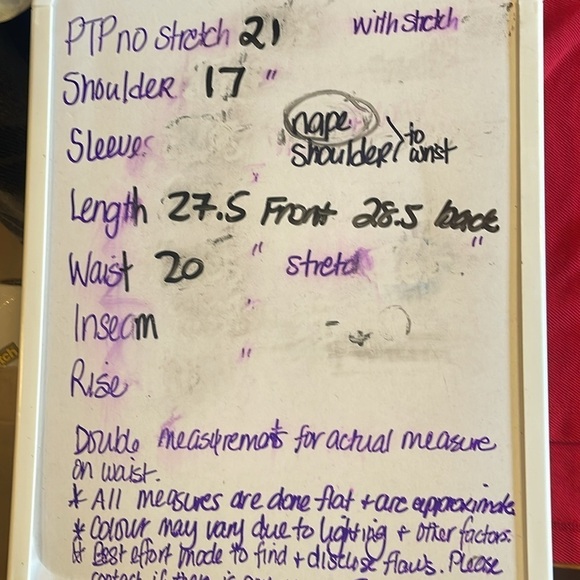 PTP no stretch 21 with stretch
Shoulder 17 "
Sleeves nape
shoulder to wrist
Length 27.5 Front 28.5 back
Waist 20 " stretch "
Inseam "
Rise "
Double measurements for actual measure
on waist.
* All measures are done flat + are approximate
* Colour may vary due to lighting + other factors.
* Best effort made to find + disclose flaws. Please
contact if there is